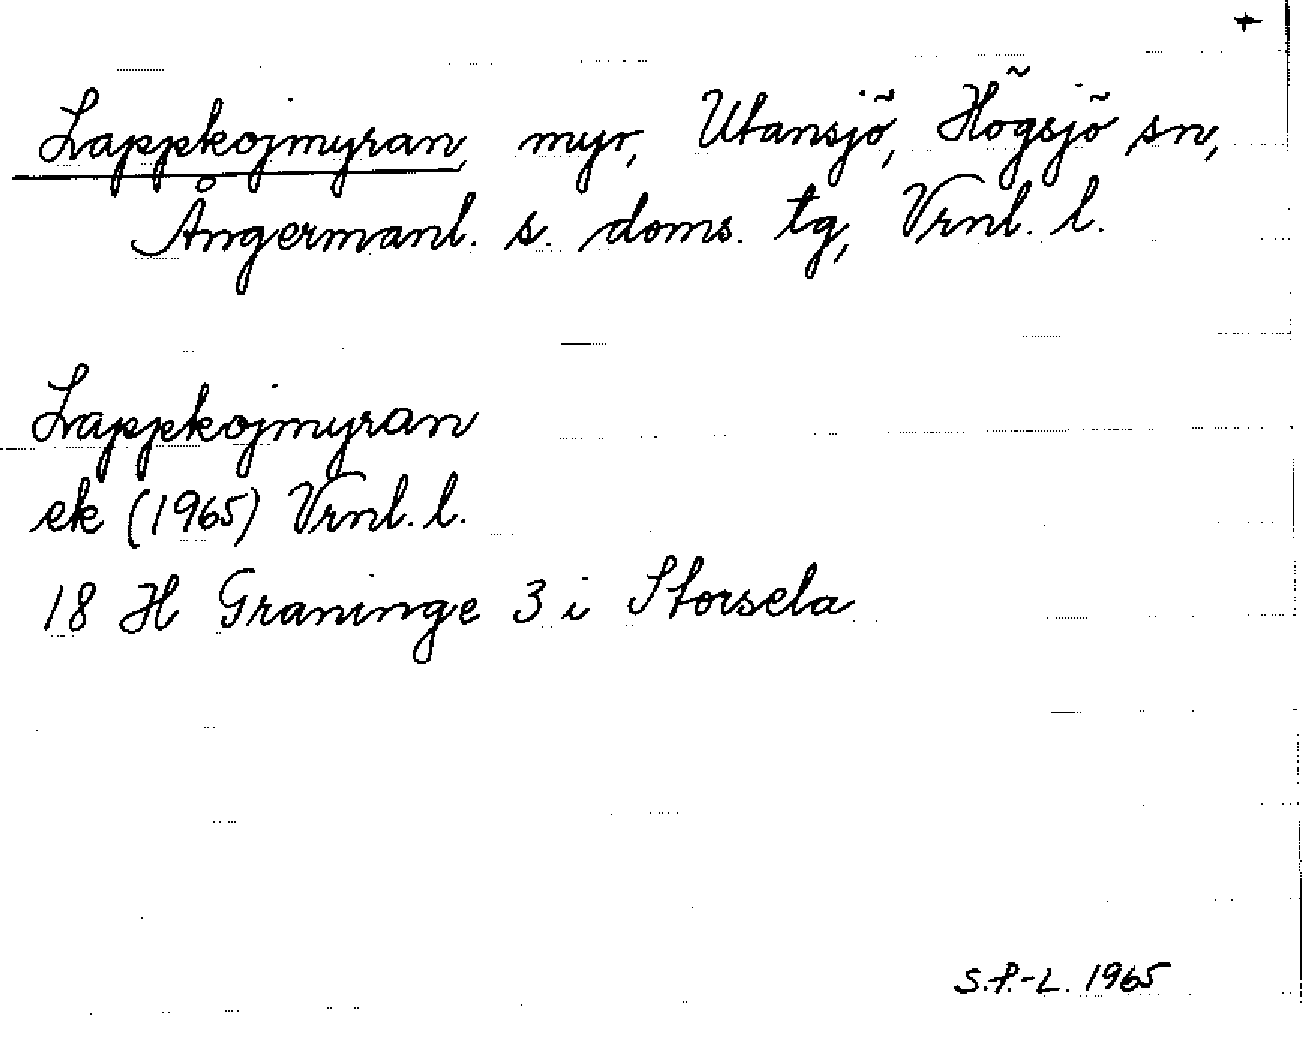 Lappkojmyran, myr, Utansjö, Högsjö sn,
Ångermanl. s. doms. tg, Vrnl. l.
Lappkojmyran
ek (1965) Vrnl. l.
18 H Graninge 3 i Storsela
S.P.-L. 1965